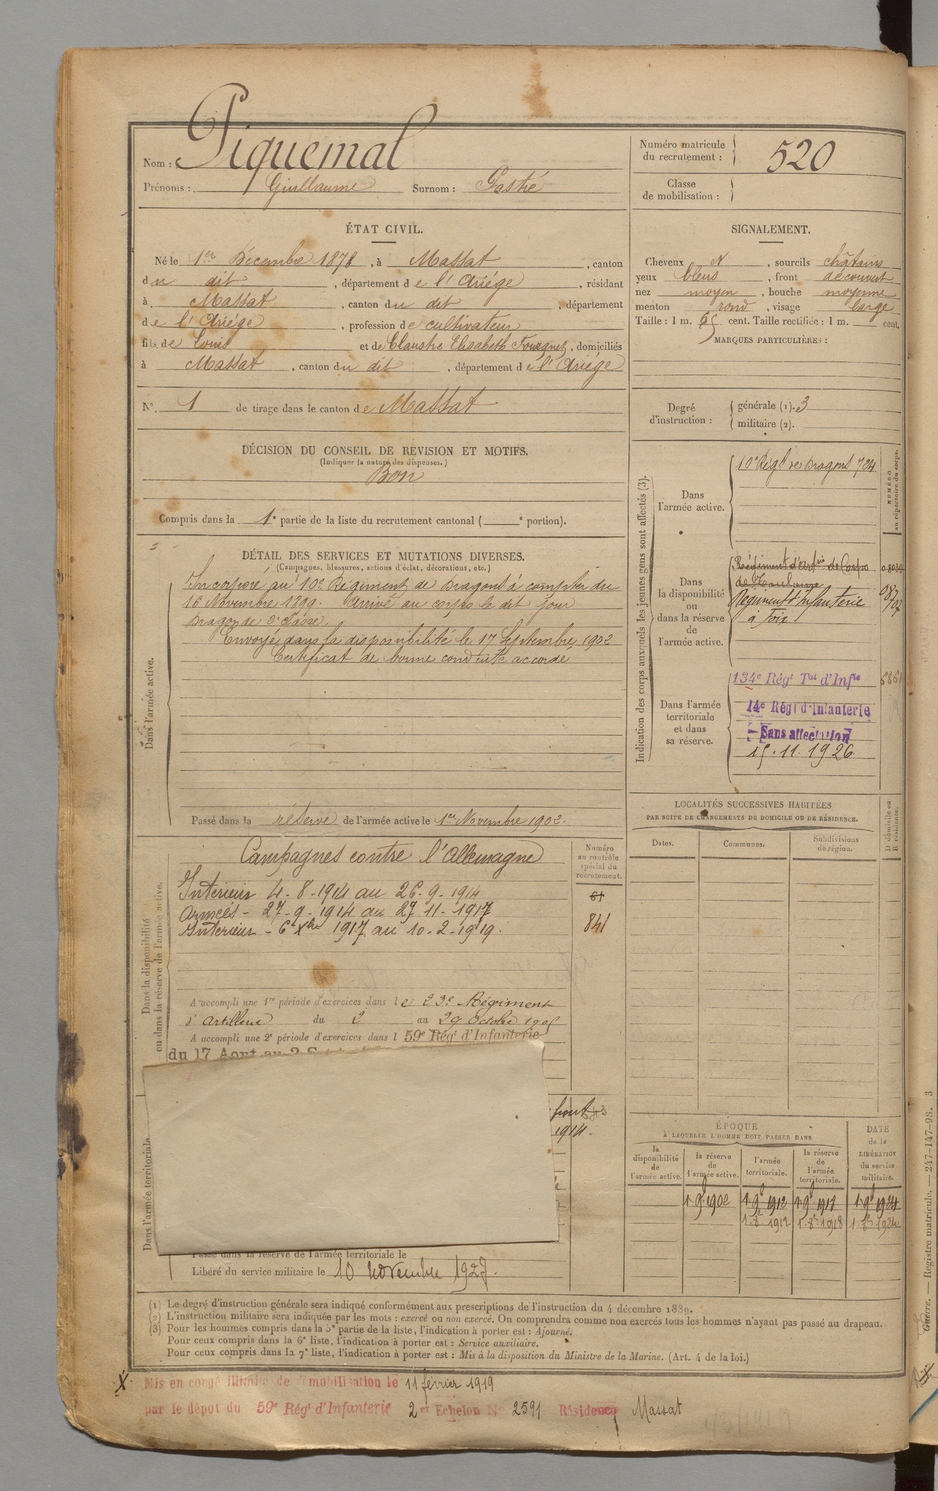 Nom : Piquemal
Prénoms : Guillaume Surnom : Gastié
Numéro matricule du recrutement : 520
Classe de mobilisation :
ÉTAT CIVIL.
Né le 1er Décembre 1878, à Massat, canton
du dit, département de l'Ariége, résidant
à Massat, canton du dit, département
de l'Ariége, profession de cultivateur
fils de Louis et de Claustre Elisabeth, domiciliés
à Massat, canton du dit, département de l'Ariége
N°. 1 de tirage dans le canton de Massat
SIGNALEMENT.
Cheveux N, sourcils châtains
yeux bleus, front découvert
nez moyen, bouche moyenne
menton rond, visage large
Taille : 1 m. 65 cent. Taille rectifiée : 1 m. cent.
MARQUES PARTICULIÈRES :
Degré d'instruction : générale (1). 3
militaire (2).
DÉCISION DU CONSEIL DE REVISION ET MOTIFS.
(Indiquer la nature des dispenses.)
Bon
Compris dans la 1e partie de la liste du recrutement cantonal ( e portion).
DÉTAIL DES SERVICES ET MUTATIONS DIVERSES.
(Campagnes, blessures, actions d'éclat, décorations, etc.)
Dans l'armée active.
Incorporé au 10e Régiment de Dragons à compter du
16 Novembre 1899. Arrivé au corps le dit jour
Dragon de 2e classe.
Envoyé dans la disponibilité le 17 Septembre 1902
Certificat de bonne conduite accordé
Passé dans la réserve de l'armée active le 1er Novembre 1902.
Indication des corps auxquels les jeunes gens sont affectés (3).
NUMÉRO au répertoire du corps.
Dans l'armée active.
10e Régt de Dragons 724
Dans la disponibilité ou dans la réserve de l'armée active.
Régiment d'Infanterie
à Foix
Dans l'armée territoriale et dans sa réserve.
134e Régt Tal d'Infie
14e Régt d'Infanterie
Sans affectation
15.11.1926
LOCALITÉS SUCCESSIVES HABITÉES
PAR SUITE DE CHANGEMENTS DE DOMICILE OU DE RÉSIDENCE.
Dates. Communes. Subdivisions de région. D. domicile ou R. résidence.
Dans la disponibilité ou dans la réserve de l'armée active.
Numéro au contrôle spécial du recrutement.
61
841
Campagnes contre l'Allemagne
Intérieur 4-8-1914 au 26-9-1914
Armées - 27-9-1914 au 27 11-1917
Intérieur - 6 Xbre 1917 au 10-2-1919.
A accompli une 1re période d'exercices dans le 23e Régiment
d'Artillerie du 2 au 29 Octobre 1905
A accompli une 2e période d'exercices dans l 59e Régt d'Infanterie
du 17 Aout au 2
front
1914.
Dans l'armée territoriale
Passé dans la réserve de l'armée territoriale le
Libéré du service militaire le 10 novembre 1927.
ÉPOQUE
A LAQUELLE L'HOMME DOIT PASSER DANS
la disponibilité de l'armée active. la réserve de l'armée active. l'armée territoriale. la réserve de l'armée territoriale. DATE de la LIBÉRATION du service militaire.
(1) Le degré d'instruction générale sera indiqué conformément aux prescriptions de l'instruction du 4 décembre 1889.
(2) L'instruction militaire sera indiquée par les mots : exercé ou non exercé. On comprendra comme non exercés tous les hommes n'ayant pas passé au drapeau.
(3) Pour les hommes compris dans la 5e partie de la liste, l'indication à porter est : Ajourné.
Pour ceux compris dans la 6e liste, l'indication à porter est : Service auxiliaire.
Pour ceux compris dans la 7e liste, l'indication à porter est : Mis à la disposition du Ministre de la Marine. (Art. 4 de la loi.)
Mis en congé illimité de démobilisation le 11 février 1919
par le dépôt du 59e Régt d'Infanterie 2e Echelon N° 2591 Résidence Massat
Guerre. — Registre matricule. — 247-147-98. 3